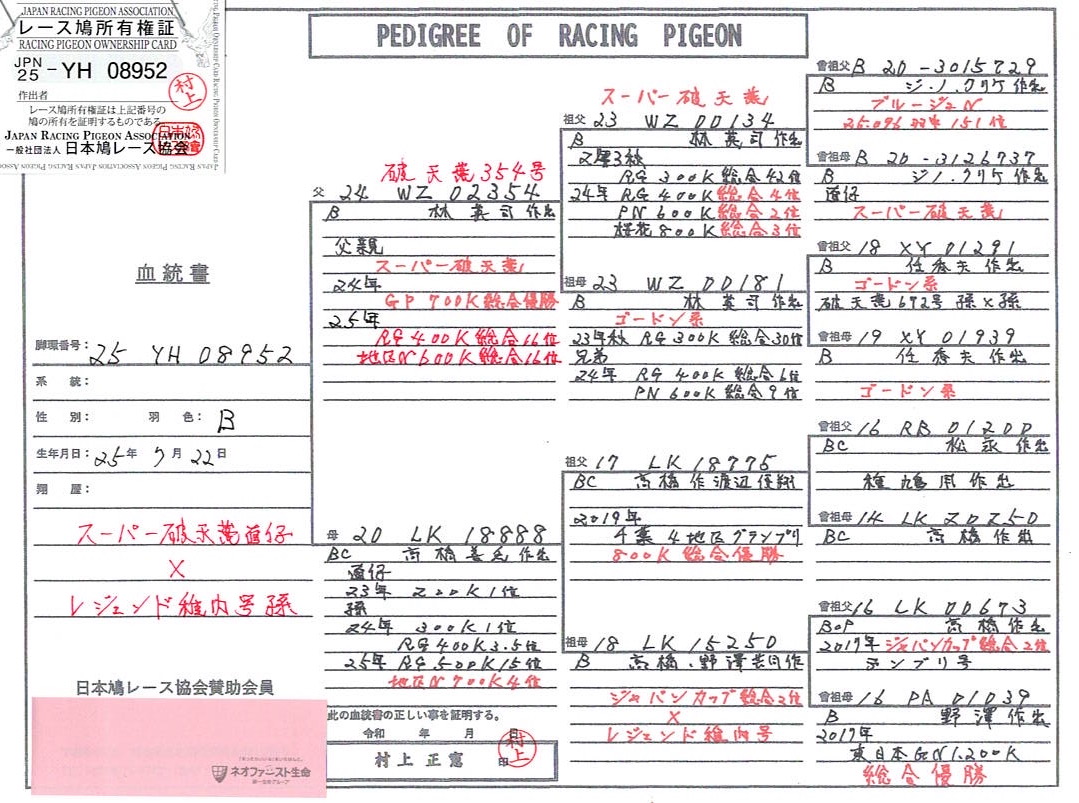 JAPAN RACING PIGEON ASSOCIATION
レース鳩所有権証
RACING PIGEON OWNERSHIP CARD
JPN
25 - YH 08952
作出者
村上
レース鳩所有権証は上記番号の
鳩の所有を証明するものである。
JAPAN RACING PIGEON ASSOCIATION
一般社団法人 日本鳩レース協会
PEDIGREE OF RACING PIGEON
血統書
脚環番号: 25 YH 08952
系 統:
性 別: 羽 色: B
生年月日: 25年 7月 22日
翔 屋:
スーパー破天荒直仔
X
レジェンド稚内号孫
日本鳩レース協会賛助会員
ネオファースト生命
第一生命グループ
破天荒354号
父 24 WZ 02354
B 林 英司 作出
父親
スーパー破天荒
24年
GP 700K総合優勝
25年
RG 400K総合16位
地区N600K総合16位
母 20 LK 18888
BC 高橋 作出
直仔
23年 200K1位
孫
24年 300K1位
RG400K3.5位
25年 RG500K15位
地区N700K4位
此の血統書の正しい事を証明する。
令和 年 月 日
村上 正寛 印
村上
スーパー破天荒
祖父 23 WZ 00134
B 林 英司 作出
RG 300K総合42位
24年 RG 400K総合4位
PN 600K総合2位
桜花800K総合3位
祖母 23 WZ 00181
B 林 英司 作出
ゴードン系
23年秋 RG300K総合30位
兄弟
24年 RG 400K総合6位
PN 600K総合9位
祖父 17 LK 18775
BC 高橋作 渡辺使翔
2019年
千葉4地区グランプリ
800K総合優勝
祖母 18 LK 15250
B 高橋・野澤共同作
ジャパンカップ総合2位
X
レジェンド稚内号
曾祖父 B 20-3015729
B ジノ・クリケ 作出
ブルージュN
25.096羽中151位
曾祖母 B 20-3126737
B ジノ・クリケ 作出
直仔
スーパー破天荒
曾祖父 18 XY 01291
B 任 秀夫 作出
ゴードン系
破天荒672号 孫×孫
曾祖母 19 XY 01939
B 任 秀夫 作出
ゴードン系
曾祖父 16 RB 01200
BC 松永 作出
種鳩用作出
曾祖母 14 LK 20250
BC 高橋 作出
曾祖父 16 LK 00673
BOP 高橋 作出
2017年 ジャパンカップ総合2位
テンプリ号
曾祖母 16 PA 01039
B 野澤 作出
2017年
東日本GN1.200K
総合優勝